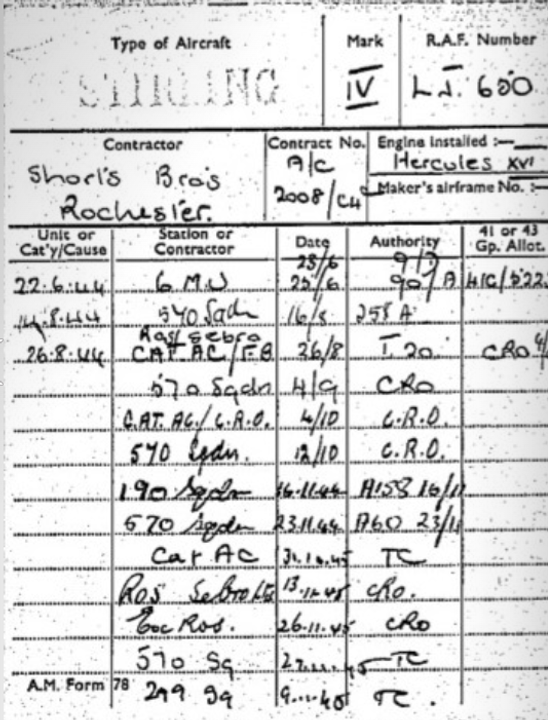 Type of Aircraft Mark R.A.F. Number
STIRLING IV LJ. 650
Contractor Contract No. Engine Installed :—
Short's Bro's A/C Hercules XVI
Rochester. 2008/C4 Maker's airframe No. :—
Unit or Cat'y/Cause Station or Contractor Date Authority 41 or 43 Gp. Allot.
22.6.44 6 M.U 25/6 90/A 41C/522
14.8.44 570 Sqdn 16/8 258 A
26.8.44 CAT AC/F.B 26/8 T 20 CRO
570 Sqdn 4/9 CRO
CAT. AC./C.R.O. 4/10 C.R.O.
570 Sqdn. 12/10 C.R.O.
190 Sqdn 16.11.44 A158 16/11
570 Sqdn 23.11.44 A60 23/11
Cat AC TC
ROS 13 CRO.
Ros. 26.11.45 CRO
570 Sq TC
A.M. Form 78 299 Sq TC.